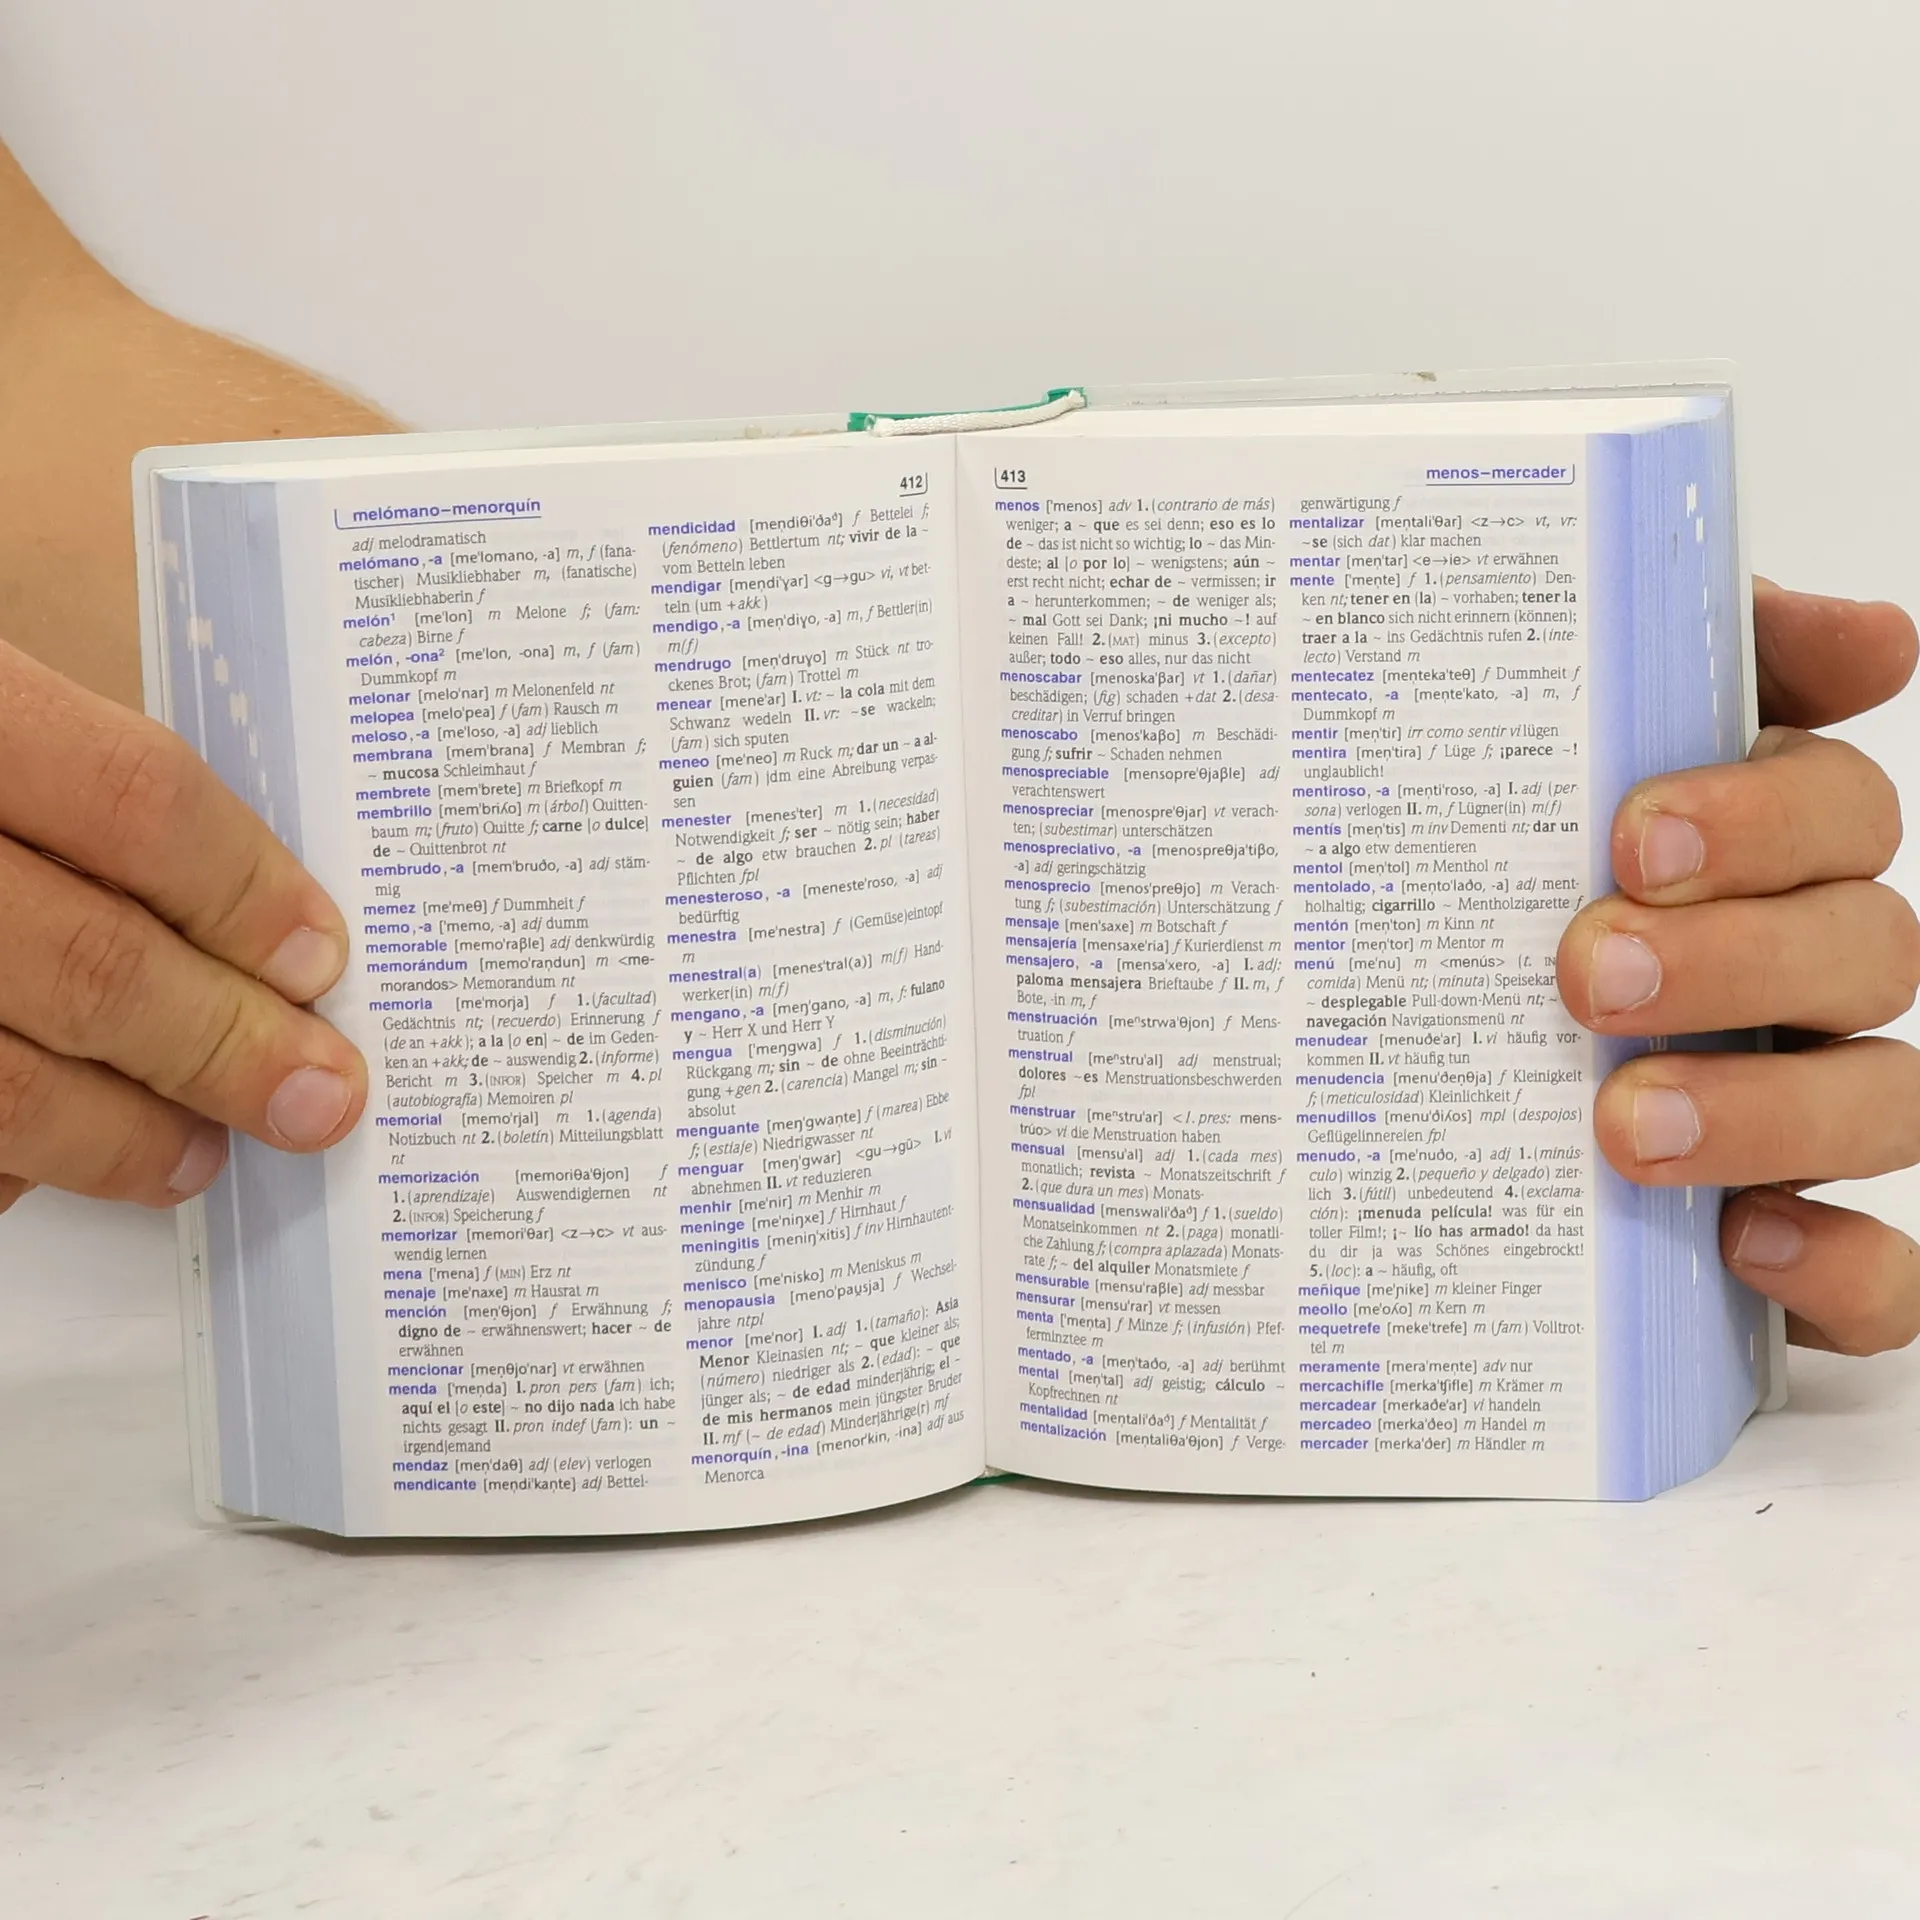 melómano–menorquín
412
adj melodramatisch
melómano, -a [me'lomano, -a] m, f (fana-
tischer) Musikliebhaber m, (fanatische)
Musikliebhaberin f
melón¹ [me'lon] m Melone f; (fam:
cabeza) Birne f
melón, -ona² [me'lon, -ona] m, f (fam)
Dummkopf m
melonar [melo'nar] m Melonenfeld nt
melopea [melo'pea] f (fam) Rausch m
meloso, -a [me'loso, -a] adj lieblich
membrana [mem'brana] f Membran f;
~ mucosa Schleimhaut f
membrete [mem'brete] m Briefkopf m
membrillo [mem'briʎo] m (árbol) Quitten-
baum m; (fruto) Quitte f; carne [o dulce]
de ~ Quittenbrot nt
membrudo, -a [mem'bruðo, -a] adj stäm-
mig
memez [me'meθ] f Dummheit f
memo, -a ['memo, -a] adj dumm
memorable [memo'raβle] adj denkwürdig
memorándum [memo'raṇdun] m <me-
morandos> Memorandum nt
memoria [me'morja] f 1. (facultad)
Gedächtnis nt; (recuerdo) Erinnerung f
(de an +akk); a la [o en] ~ de im Geden-
ken an +akk; de ~ auswendig 2. (informe)
Bericht m 3. (INFOR) Speicher m 4. pl
(autobiografía) Memoiren pl
memorial [memo'rjal] m 1. (agenda)
Notizbuch nt 2. (boletín) Mitteilungsblatt
nt
memorización [memoriθa'θjon] f
1. (aprendizaje) Auswendiglernen nt
2. (INFOR) Speicherung f
memorizar [memori'θar] <z→c> vt aus-
wendig lernen
mena ['mena] f (MIN) Erz nt
menaje [me'naxe] m Hausrat m
mención [meṇ'θjon] f Erwähnung f;
digno de ~ erwähnenswert; hacer ~ de
erwähnen
mencionar [meṇθjo'nar] vt erwähnen
menda ['meṇda] I. pron pers (fam) ich;
aquí el [o este] ~ no dijo nada ich habe
nichts gesagt II. pron indef (fam): un ~
irgendjemand
mendaz [meṇ'daθ] adj (elev) verlogen
mendicante [meṇdi'kaṇte] adj Bettel-
mendicidad [meṇdiθi'ðaᵟ] f Bettelei f;
(fenómeno) Bettlertum nt; vivir de la ~
vom Betteln leben
mendigar [meṇdi'ɣar] <g→gu> vi, vt bet-
teln (um +akk)
mendigo, -a [meṇ'diɣo, -a] m, f Bettler(in)
m(f)
mendrugo [meṇ'druɣo] m Stück nt tro-
ckenes Brot; (fam) Trottel m
menear [mene'ar] I. vt: ~ la cola mit dem
Schwanz wedeln II. vr: ~se wackeln;
(fam) sich sputen
meneo [me'neo] m Ruck m; dar un ~ a al-
guien (fam) jdm eine Abreibung verpas-
sen
menester [menes'ter] m 1. (necesidad)
Notwendigkeit f; ser ~ nötig sein; haber
~ de algo etw brauchen 2. pl (tareas)
Pflichten fpl
menesteroso, -a [meneste'roso, -a] adj
bedürftig
menestra [me'nestra] f (Gemüse)eintopf
m
menestral(a) [menes'tral(a)] m(f) Hand-
werker(in) m(f)
mengano, -a [meŋ'gano, -a] m, f: fulano
y ~ Herr X und Herr Y
mengua ['meŋgwa] f 1. (disminución)
Rückgang m; sin ~ de ohne Beeinträchti-
gung +gen 2. (carencia) Mangel m; sin ~
absolut
menguante [meŋ'gwaṇte] f (marea) Ebbe
f; (estiaje) Niedrigwasser nt
menguar [meŋ'gwar] <gu→gü> I. vi
abnehmen II. vt reduzieren
menhir [me'nir] m Menhir m
meninge [me'niŋxe] f Hirnhaut f
meningitis [meniŋ'xitis] f inv Hirnhautent-
zündung f
menisco [me'nisko] m Meniskus m
menopausia [meno'pau̯sja] f Wechsel-
jahre ntpl
menor [me'nor] I. adj 1. (tamaño): Asia
Menor Kleinasien nt; ~ que kleiner als;
(número) niedriger als 2. (edad): ~ que
jünger als; ~ de edad minderjährig; el ~
de mis hermanos mein jüngster Bruder
II. mf (~ de edad) Minderjährige(r) mf
menorquín, -ina [menor'kin, -ina] adj aus
Menorca
413
menos–mercader
menos ['menos] adv 1. (contrario de más)
weniger; a ~ que es sei denn; eso es lo
de ~ das ist nicht so wichtig; lo ~ das Min-
deste; al [o por lo] ~ wenigstens; aún ~
erst recht nicht; echar de ~ vermissen; ir
a ~ herunterkommen; ~ de weniger als;
~ mal Gott sei Dank; ¡ni mucho ~! auf
keinen Fall! 2. (MAT) minus 3. (excepto)
außer; todo ~ eso alles, nur das nicht
menoscabar [menoska'βar] vt 1. (dañar)
beschädigen; (fig) schaden +dat 2. (desa-
creditar) in Verruf bringen
menoscabo [menos'kaβo] m Beschädi-
gung f; sufrir ~ Schaden nehmen
menospreciable [mensopre'θjaβle] adj
verachtenswert
menospreciar [menospre'θjar] vt verach-
ten; (subestimar) unterschätzen
menospreciativo, -a [menospreθja'tiβo,
-a] adj geringschätzig
menosprecio [menos'preθjo] m Verach-
tung f; (subestimación) Unterschätzung f
mensaje [men'saxe] m Botschaft f
mensajería [mensaxe'ria] f Kurierdienst m
mensajero, -a [mensa'xero, -a] I. adj:
paloma mensajera Brieftaube f II. m, f
Bote, -in m, f
menstruación [meⁿstrwa'θjon] f Mens-
truation f
menstrual [meⁿstru'al] adj menstrual;
dolores ~es Menstruationsbeschwerden
fpl
menstruar [meⁿstru'ar] <1. pres: mens-
trúo> vi die Menstruation haben
mensual [mensu'al] adj 1. (cada mes)
monatlich; revista ~ Monatszeitschrift f
2. (que dura un mes) Monats-
mensualidad [menswali'ðaᵟ] f 1. (sueldo)
Monatseinkommen nt 2. (paga) monatli-
che Zahlung f; (compra aplazada) Monats-
rate f; ~ del alquiler Monatsmiete f
mensurable [mensu'raβle] adj messbar
mensurar [mensu'rar] vt messen
menta ['meṇta] f Minze f; (infusión) Pfef-
ferminztee m
mentado, -a [meṇ'taðo, -a] adj berühmt
mental [meṇ'tal] adj geistig; cálculo ~
Kopfrechnen nt
mentalidad [meṇtali'ðaᵟ] f Mentalität f
mentalización [meṇtaliθa'θjon] f Verge-
genwärtigung f
mentalizar [meṇtali'θar] <z→c> vt, vr:
~se (sich dat) klar machen
mentar [meṇ'tar] <e→ie> vt erwähnen
mente ['meṇte] f 1. (pensamiento) Den-
ken nt; tener en (la) ~ vorhaben; tener la
~ en blanco sich nicht erinnern (können);
traer a la ~ ins Gedächtnis rufen 2. (inte-
lecto) Verstand m
mentecatez [meṇteka'teθ] f Dummheit f
mentecato, -a [meṇte'kato, -a] m, f
Dummkopf m
mentir [meṇ'tir] irr como sentir vi lügen
mentira [meṇ'tira] f Lüge f; ¡parece ~!
unglaublich!
mentiroso, -a [meṇti'roso, -a] I. adj (per
sona) verlogen II. m, f Lügner(in) m(f)
mentís [meṇ'tis] m inv Dementi nt; dar un
~ a algo etw dementieren
mentol [meṇ'tol] m Menthol nt
mentolado, -a [meṇto'laðo, -a] adj ment-
holhaltig; cigarrillo ~ Mentholzigarette f
mentón [meṇ'ton] m Kinn nt
mentor [meṇ'tor] m Mentor m
menú [me'nu] m <menús> (t.
comida) Menü nt; (minuta)
~ desplegable Pull-down-Menü nt; ~
navegación Navigationsmenü nt
menudear [menuðe'ar] I. vi häufig vor-
kommen II. vt häufig tun
menudencia [menu'ðeṇθja] f Kleinigkeit
f; (meticulosidad) Kleinlichkeit f
menudillos [menu'ðiʎos] mpl (despojos)
Geflügelinnereien fpl
menudo, -a [me'nuðo, -a] adj 1. (minús-
culo) winzig 2. (pequeño y delgado) zier-
lich 3. (fútil) unbedeutend 4. (exclama-
ción): ¡menuda película! was für ein
toller Film!; ¡~ lío has armado! da hast
du dir ja was Schönes eingebrockt!
5. (loc): a ~ häufig, oft
meñique [me'ɲike] m kleiner Finger
meollo [me'oʎo] m Kern m
mequetrefe [meke'trefe] m (fam) Volltrot-
tel m
meramente [mera'meṇte] adv nur
mercachifle [merka'ʧifle] m Krämer m
mercadear [merkaðe'ar] vi handeln
mercadeo [merka'ðeo] m Handel m
mercader [merka'ðer] m Händler m